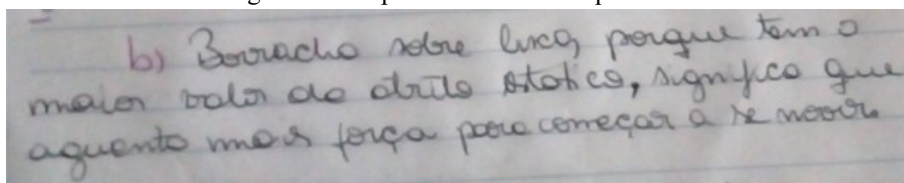 b) Borracha sobre lixa, porque tem o
maior valor do atrito estático, significa que
aguenta mais força para começar a se mover